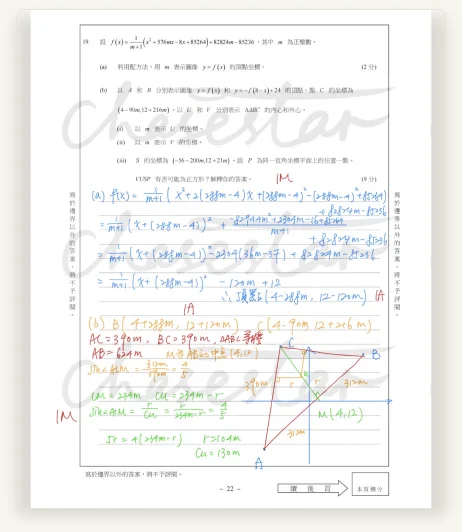 19. 設 f(x) = 1/(m+1) (x² + 576mx − 8x + 85264) + 82824m − 85236,其中 m 為正整數。
(a) 利用配方法,用 m 表示圖像 y = f(x) 的頂點坐標。 (2 分)
(b) 以 A 和 B 分別表示圖像 y = f(x) 和 y = −f(8−x)+24 的頂點。點 C 的坐標為
(4−90m, 12+216m)。以 U 和 V 分別表示 ΔABC 的內心和外心。
(i) 以 m 表示 U 的坐標。
(ii) 以 m 表示 V 的坐標。
(iii) S 的坐標為 (−56−200m, 12+21m)。設 P 為同一直角坐標平面上的任意一點。
VUSP 有否可能為正方形?解釋你的答案。 (9 分)
1M
(a) f(x) = 1/(m+1) (x² + 2(288m−4)x + (288m−4)² − (288m−4)² + 85264)
+ 82824m − 85236
= 1/(m+1) (x + (288m−4))² + (−82944m² + 2304m − 16 + 85264)/(m+1)
+ 82824m − 85236
= 1/(m+1) (x + (288m−4))² − 2304(36m−37) + 82824m − 85236
= 1/(m+1) (x + (288m−4))² − 120m + 12
∴ 頂點 (4−288m, 12−120m) 1A
1A
(b) B(4+288m, 12+120m) C(4−90m, 12+216m)
AC = 390m, BC = 390m, ΔABC 等腰
AB = 624m M為AB的中點 (4,12)
sin∠AM = 312m/390m = 4/5
CM = 234m CU = 234m − r
1M
sin∠AM = r/CU = r/(234m−r) = 4/5
5r = 4(234m−r) r = 104m
CU = 130m
C
B
390m
r
r
312m
M(4,12)
312m
A
寫於邊界以外的答案,將不予評閱。
寫於邊界以外的答案,將不予評閱。
寫於邊界以外的答案,將不予評閱。
– 22 –
續 後 頁
本頁積分
chevestar